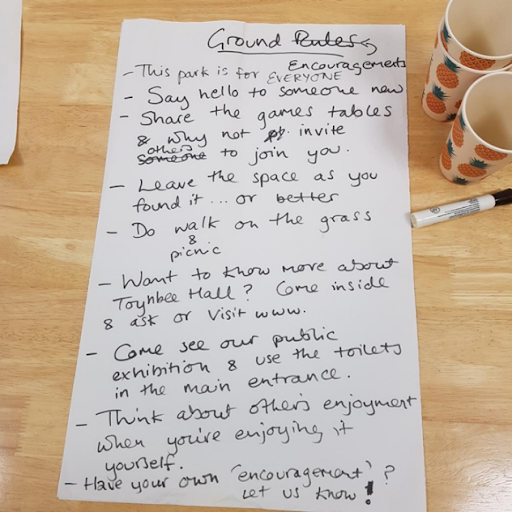 Ground Rules
Encouragements
- This park is for EVERYONE
- Say hello to someone new
- Share the games tables
& why not invite
others
someone to join you.
- Leave the space as you
found it ... or better
- Do walk on the grass
&
picnic
- Want to know more about
Toynbee Hall? Come inside
& ask or visit www.
- Come see our public
exhibition & use the toilets
in the main entrance.
- Think about others enjoyment
when you're enjoying it
yourself.
- Have your own 'encouragement'?
Let us know!